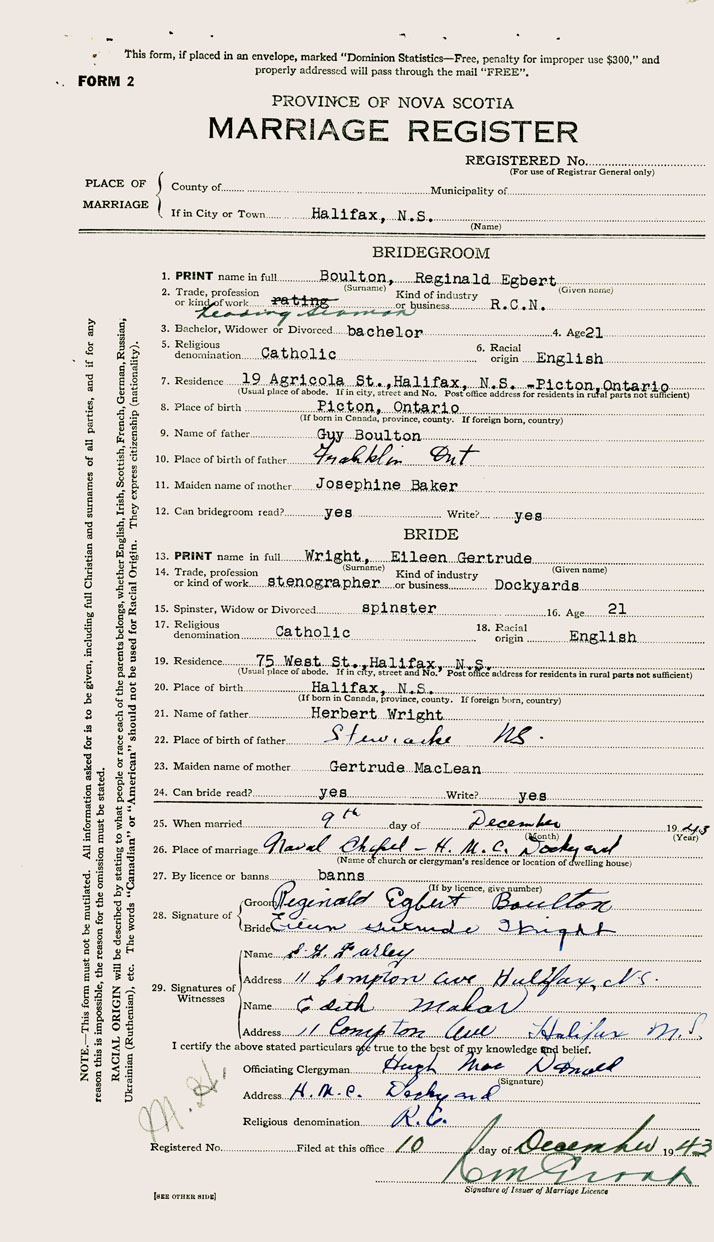 This form, if placed in an envelope, marked "Dominion Statistics—Free, penalty for improper use $300," and
properly addressed will pass through the mail "FREE".
FORM 2
PROVINCE OF NOVA SCOTIA
MARRIAGE REGISTER
REGISTERED No.
(For use of Registrar General only)
PLACE OF MARRIAGE
County of Municipality of
If in City or Town Halifax, N.S.
(Name)
BRIDEGROOM
1. PRINT name in full Boulton, Reginald Egbert
(Surname) (Given name)
2. Trade, profession or kind of work rating Kind of industry or business R.C.N.
Leading Seaman
3. Bachelor, Widower or Divorced bachelor 4. Age 21
5. Religious denomination Catholic 6. Racial origin English
7. Residence 19 Agricola St., Halifax, N.S. -Picton, Ontario
(Usual place of abode. If in city, street and No. Post office address for residents in rural parts not sufficient)
8. Place of birth Picton, Ontario
(If born in Canada, province, county. If foreign born, country)
9. Name of father Guy Boulton
10. Place of birth of father Franklin Ont
11. Maiden name of mother Josephine Baker
12. Can bridegroom read? yes Write? yes
BRIDE
13. PRINT name in full Wright, Eileen Gertrude
(Surname) (Given name)
14. Trade, profession or kind of work stenographer Kind of industry or business Dockyards
15. Spinster, Widow or Divorced spinster 16. Age 21
17. Religious denomination Catholic 18. Racial origin English
19. Residence 75 West St., Halifax, N.S.
(Usual place of abode. If in city, street and No. Post office address for residents in rural parts not sufficient)
20. Place of birth Halifax, N.S.
(If born in Canada, province, county. If foreign born, country)
21. Name of father Herbert Wright
22. Place of birth of father Stewiacke NS.
23. Maiden name of mother Gertrude MacLean
24. Can bride read? yes Write? yes
25. When married 9th day of December 1943
(Month) (Year)
26. Place of marriage Naval Chapel - H.M.C. Dockyard
(Name of church or clergyman's residence or location of dwelling house)
27. By licence or banns banns
(If by licence, give number)
28. Signature of
Groom Reginald Egbert Boulton
Bride Eileen Gertrude Wright
29. Signatures of Witnesses
Name Farley
Address 11 Compton Ave Halifax, N.S.
Name Edith Mahar
Address 11 Compton Ave Halifax N.S.
I certify the above stated particulars are true to the best of my knowledge and belief.
Officiating Clergyman Hugh MacDonald
(Signature)
Address H.M.C. Dockyard
Religious denomination R.C.
Registered No. Filed at this office 10 day of December 1943
Signature of Issuer of Marriage Licence
[SEE OTHER SIDE]
NOTE.—This form must not be mutilated. All information asked for is to be given, including full Christian and surnames of all parties, and if for any
reason this is impossible, the reason for the omission must be stated.
RACIAL ORIGIN will be described by stating to what people or race each of the parents belongs, whether English, Irish, Scottish, French, German, Russian,
Ukrainian (Ruthenian), etc. The words "Canadian" or "American" should not be used for Racial Origin. They express citizenship (nationality).
M.H.